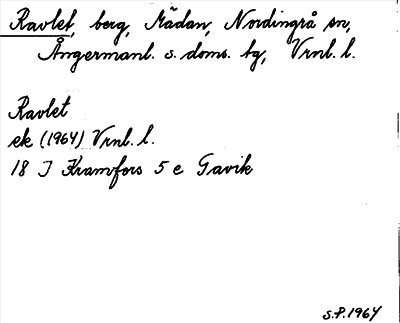 Ravlet, berg, Mädan, Nordingrå sn,
Ångermanl. s. doms. tg, Vrnl. l.
Ravlet
ek (1964) Vrnl. l.
18 J Kramfors 5 e Gavik
S.P. 1964